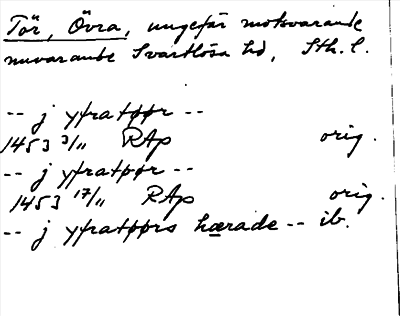 Tör, Övra, ungefär motsvarande
nuvarande Svartlösa hd, Sth. l.
-- j yfratøør --
1453 3/11 RAp orig.
-- j yfratøør --
1453 17/11 RAp orig.
-- j yfratøørs hærade -- ib.